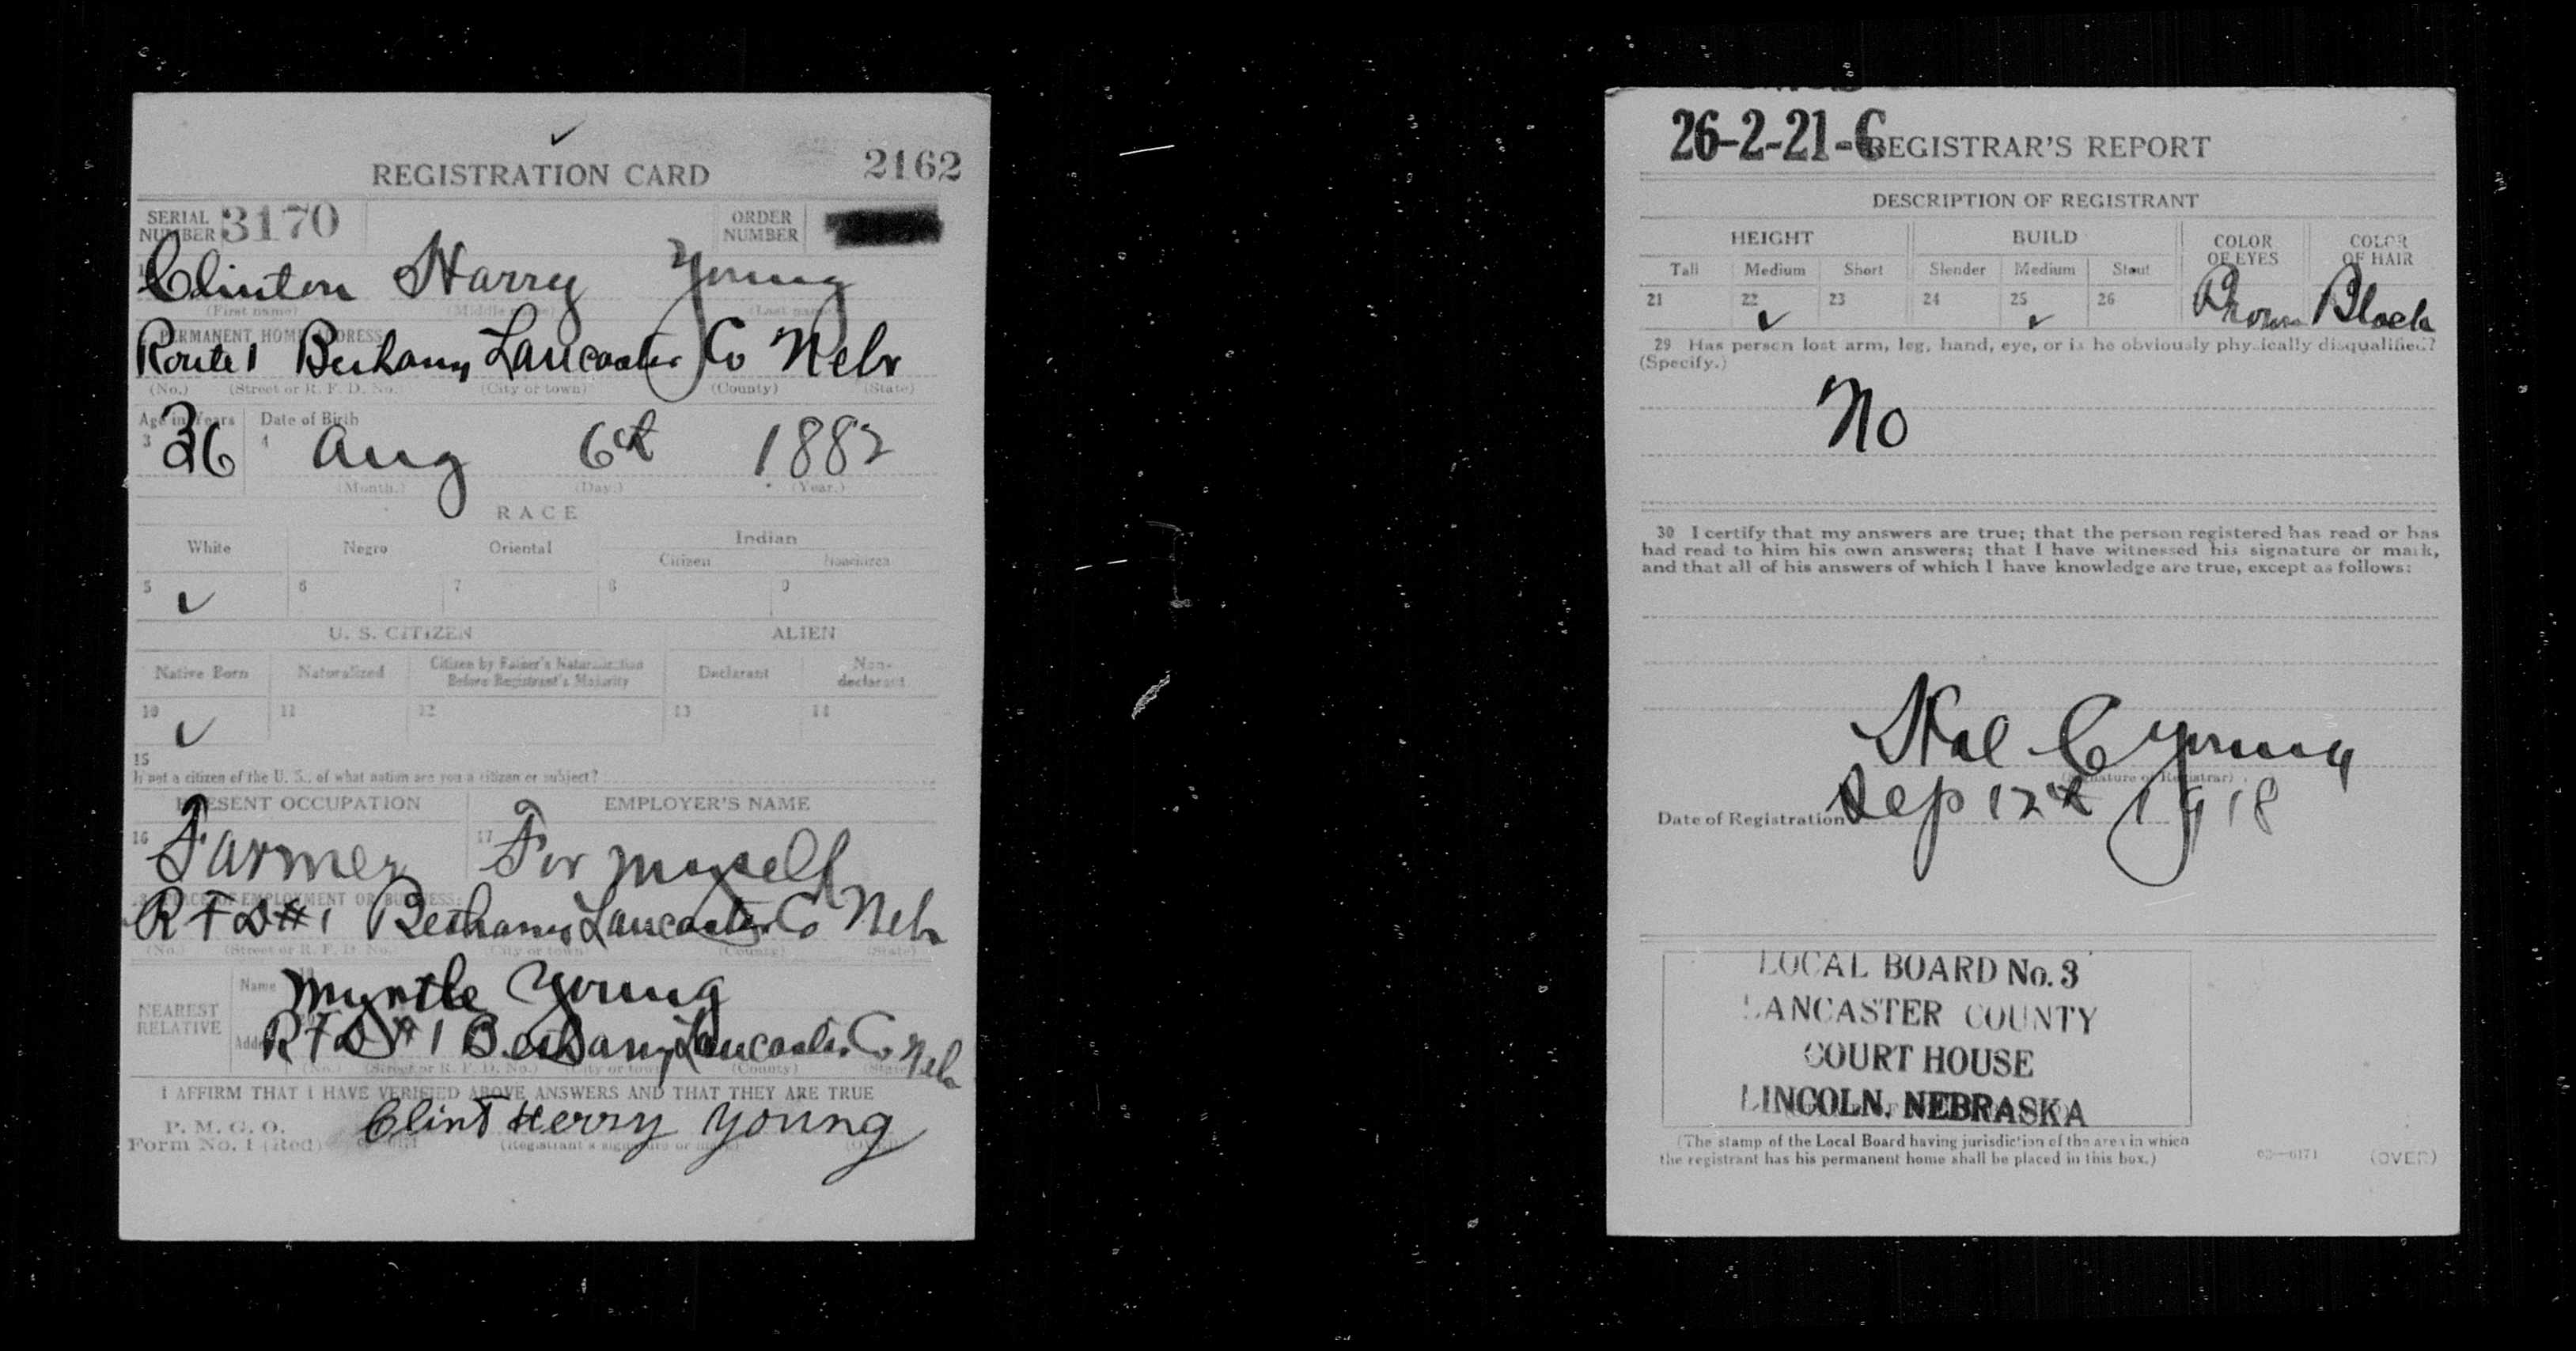 2162
REGISTRATION CARD
SERIAL NUMBER 3170 ORDER NUMBER
Clinton Harry Young
(First name) (Middle name) (Last name)
PERMANENT HOME ADDRESS
Route 1 Bethany Lancaster Co Nebr
(No.) (Street or R. F. D. No.) (City or town) (County) (State)
Age in Years Date of Birth
3 36 4 Aug 6th 1882
(Month.) (Day.) (Year.)
RACE
White Negro Oriental Indian
Citizen Noncitizen
5 ✓ 6 7 8 9
U. S. CITIZEN ALIEN
Native Born Naturalized Citizen by Father's Naturalization Before Registrant's Majority Declarant Non-declarant
10 ✓ 11 12 13 14
15
If not a citizen of the U. S., of what nation are you a citizen or subject?
PRESENT OCCUPATION EMPLOYER'S NAME
16 Farmer 17 For myself
PLACE OF EMPLOYMENT OR BUSINESS:
R F D #1 Bethany Lancaster Co Nebr
(No.) (Street or R. F. D. No.) (City or town) (County) (State)
NEAREST RELATIVE
Name Myrtle Young
Address R F D #1 Bethany Lancaster Co Nebr
(No.) (Street or R. F. D. No.) (City or town) (County) (State)
I AFFIRM THAT I HAVE VERIFIED ABOVE ANSWERS AND THAT THEY ARE TRUE
P. M. G. O.
Form No. 1 (Red) Clint Herry Young
(Registrant's signature or mark) (OVER)
26-2-21-C REGISTRAR'S REPORT
DESCRIPTION OF REGISTRANT
HEIGHT BUILD COLOR OF EYES COLOR OF HAIR
Tall Medium Short Slender Medium Stout
21 22 ✓ 23 24 25 ✓ 26 Brown Black
29 Has person lost arm, leg, hand, eye, or is he obviously physically disqualified?
(Specify.)
No
30 I certify that my answers are true; that the person registered has read or has
had read to him his own answers; that I have witnessed his signature or mark,
and that all of his answers of which I have knowledge are true, except as follows:
Hal C Young
(Signature of Registrar)
Date of Registration Sep 12th 1918
LOCAL BOARD No. 3
LANCASTER COUNTY
COURT HOUSE
LINCOLN, NEBRASKA
(The stamp of the Local Board having jurisdiction of the area in which
the registrant has his permanent home shall be placed in this box.)
03—6171 (OVER)